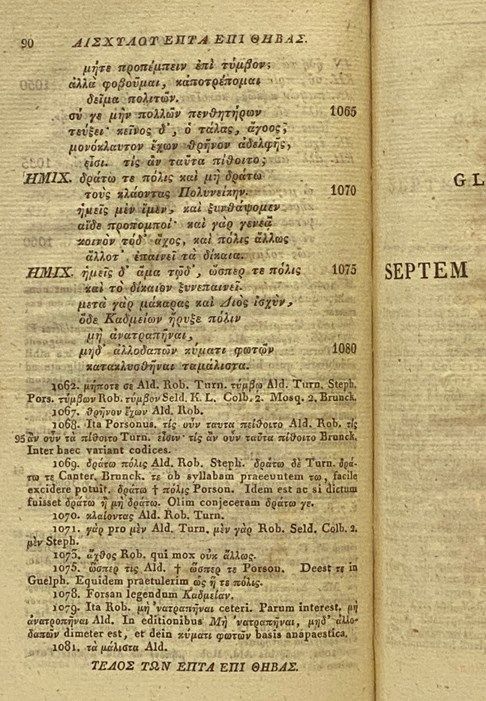 90 ΑΙΣΧΥΛΟΥ ΕΠΤΑ ΕΠΙ ΘΗΒΑΣ.
μήτε προπέμπειν ἐπὶ τύμβον;
ἀλλὰ φοβοῦμαι, κἀποτρέπομαι
δεῖμα πολιτῶν.
σύ γε μὴν πολλῶν πενθητήρων 1065
τεύξει· κεῖνος δ᾽, ὁ τάλας, ἄγοος;
μονόκλαυτον ἔχων θρῆνον ἀδελφῆς,
εἶσι. τίς ἂν ταῦτα πίθοιτο;
ΗΜΙΧ. δράτω τε πόλις καὶ μὴ δράτω
τοὺς κλάοντας Πολυνείκην. 1070
ἡμεῖς μὲν ἴμεν, καὶ ξυνθάψομεν
αἵδε προπομποί· καὶ γὰρ γενεᾷ
κοινὸν τόδ᾽ ἄχος, καὶ πόλις ἄλλως
ἄλλοτ᾽ ἐπαινεῖ τὰ δίκαια.
ΗΜΙΧ. ἡμεῖς δ᾽ ἅμα τῷδ᾽, ὥσπερ τε πόλις 1075
καὶ τὸ δίκαιον ξυνεπαινεῖ.
μετὰ γὰρ μάκαρας καὶ Διὸς ἰσχὺν,
ὅδε Καδμείων ἤρυξε πόλιν
μὴ ἀνατραπῆναι,
μηδ᾽ ἀλλοδαπῶν κύματι φωτῶν 1080
κατακλυσθῆναι ταμάλιστα.
1062. μήποτε σε Ald. Rob. Turn. τύμβω Ald. Turn. Steph.
Pors. τύμβων Rob. τύμβον Seld. K. L. Colb. 2. Mosq. 2. Brunck.
1067. θρῆνον ἔχων Ald. Rob.
1068. Ita Porsonus. τίς οὖν ταυτα πείθοιτο Ald. Rob. τίς
95 ἂν οὖν τὰ πίθοιτο Turn. εἶσιν· τίς ἂν οὖν ταῦτα πίθοιτο Brunck.
Inter haec variant codices.
1069. δράτω πόλις Ald. Rob. Steph. δράτω δὲ Turn. δρά-
τω τε Canter. Brunck. τε ob syllabam praeeuntem τω, facile
excidere potuit. δράτω † πόλις Porson. Idem est ac si dictum
fuisset δράτω ἢ μὴ δράτω. Olim conjeceram δράτω γε.
1070. κλαίοντας Ald. Rob. Turn.
1071. γὰρ pro μὲν Ald. Turn. μὲν γὰρ Rob. Seld. Colb. 2.
μὲν Steph.
1073. ἄχθος Rob. qui mox οὐκ ἄλλως.
1075. ὥσπερ τις Ald. † ὥσπερ τε Porson. Deest τε in
Guelph. Equidem praetulerim ὡς ἥ τε πόλις.
1078. Forsan legendum Καδμείαν.
1079. Ita Rob. μὴ ᾽νατραπῆναι ceteri. Parum interest. μὴ
ἀνατραπῆναι Ald. In editionibus Μὴ ᾽νατραπῆναι, μηδ᾽ ἀλλο-
δαπῶν dimeter est, et dein κύματι φωτῶν basis anapaestica.
1081. τὰ μάλιστα Ald.
ΤΕΛΟΣ ΤΩΝ ΕΠΤΑ ΕΠΙ ΘΗΒΑΣ.
GL
SEPTEM